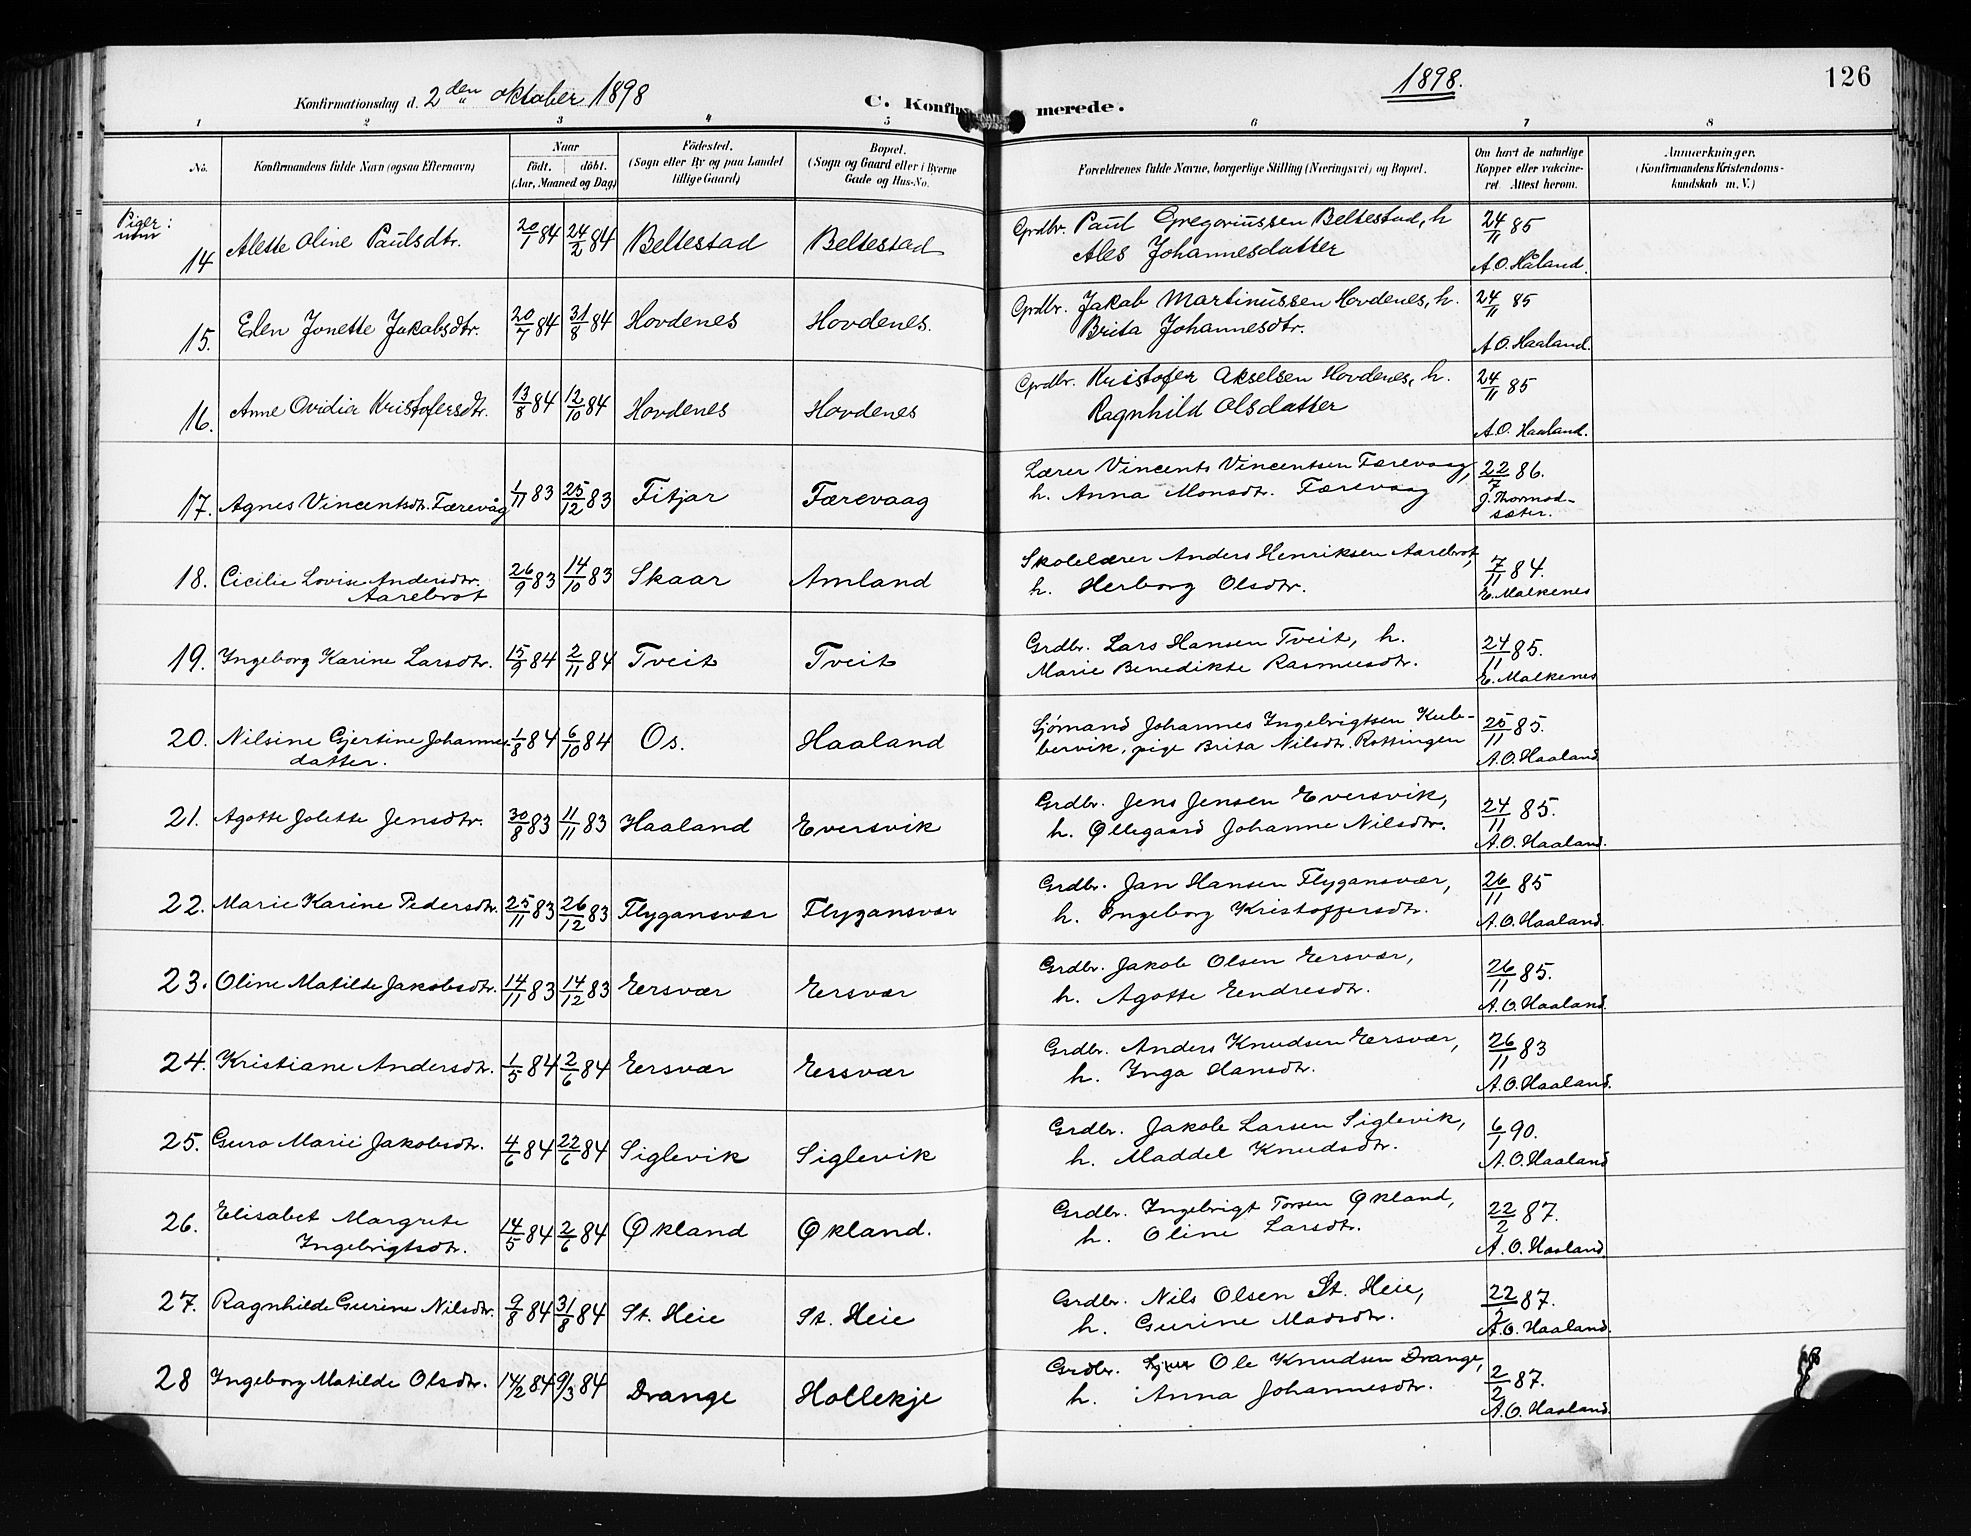 Konfirmationsdag d. 2den oktober 1898 C. Konfirmerede. 1898. 126
1 2 3 4 5 6 7 8
No. Konfirmandens fulde Navn (ogsaa Efternavn) Naar født. døbt. (Aar, Maaned og Dag) Fødested. (Sogn eller By og paa Landet tillige Gaard) Bopæl. (Sogn og Gaard eller i Byerne Gade og Hus-No. Forældrenes fulde Navne, borgerlige Stilling (Næringsvei) og Bopæl. Om havt de naturlige Kopper eller vaccineret. Attest herom. Anmærkninger. (Konfirmandens Kristendomskundskab m. V.)
Piger:
14 Alette Oline Paulsdtr. 20/1 84 24/2 84 Beltestad Beltestad Grdbr. Paul Gregoriussen Beltestad, h 24/11 85
Ales Johannesdatter A.O. Håland.
15. Elen Jonette Jakobsdtr. 20/7 84 31/8 84 Hovdenes Hovdenes. Grdbr. Jakob Martinussen Hovdenes, h. 24/11 85
Brita Johannesdtr. A.O. Haaland.
16. Anne Ovidia Kristofersdtr. 13/8 84 12/10 84 Hovdenes Hovdenes Grdbr. Kristofer Akselsen Hovdenes, h. 24/11 85
Ragnhild Olsdatter A.O. Haaland.
17. Agnes Vincentsdtr. Færevåg 1/11 83 25/12 83 Fitjar Færevaag Lærer Vincents Vincentsen Færevaag, 22/7 86.
h. Anna Monsdtr. Færevaag J. Thormodsæter.
18. Cicilie Lovise Andersdtr. Aarebrot 26/9 83 14/10 83 Skaar Amland Skolelærer Anders Henriksen Aarebrot, 7/11 84.
h. Herborg Olsdtr. E. Malkenes
19. Ingeborg Karine Larsdtr. 15/9 84 2/11 84 Tveit Tveit Grdbr. Lars Hansen Tveit, h. 24/11 85.
Marie Benedikte Rasmusdtr. E. Malkenes
20. Nilsine Gjertine Johannesdatter. 1/8 84 6/10 84 Os. Haaland Sjømand Johannes Ingebrigtsen Kulebervik, pige Brita Nilsdtr. Rottingen 25/11 85.
A.O. Haaland
21. Agotte Jolette Jensdtr. 30/8 83 11/11 83 Haaland Eversvik Grdbr. Jens Jensen Eversvik, 24/11 85.
h. Øllegaard Johanne Nilsdtr. A.O. Haaland.
22. Marie Karine Pedersdtr. 25/11 83 26/12 83 Flygansvær Flygansvær Grdbr. Jan Hansen Flygansvær, 26/11 85
h. Ingeborg Kristoffersdtr. A.O. Haaland.
23. Oline Matilde Jakobsdtr. 14/11 83 14/12 83 Eersvær Eersvær Grdbr. Jakob Olsen Eersvær, 26/11 85.
h. Agotte Eendresdtr. A.O. Haaland.
24. Kristiane Andersdtr. 1/5 84 2/6 84 Eersvær Eersvær Grdbr. Anders Knudsen Eersvær, 26/11 83
h. Inga Hansdtr. A.O. Haaland.
25. Guro Marie Jakobsdtr. 4/6 84 22/6 84 Siglevik Siglevik Grdbr. Jakob Larsen Siglevik, 6/1 90.
h. Maddel Knudsdtr. A.O. Haaland
26. Elisabet Margrete Ingebrigtsdtr. 14/5 84 2/6 84 Økland Økland. Grdbr. Ingebrigt Torsen Økland, 22/2 87.
h. Oline Larsdtr. A.O. Haaland.
27. Ragnhilde Gurine Nilsdtr. 9/8 84 31/8 84 St. Heie St. Heie Grdbr. Nils Olsen St. Heie, 22/2 87.
h. Gurine Madsdtr. A.O. Haaland.
28 Ingeborg Matilde Olsdtr. 14/2 84 9/3 84 Drange Hollekje Grdbr. Ole Knudsen Drange, 2/2 87.
h. Anna Johannesdtr. A.O. Haaland.